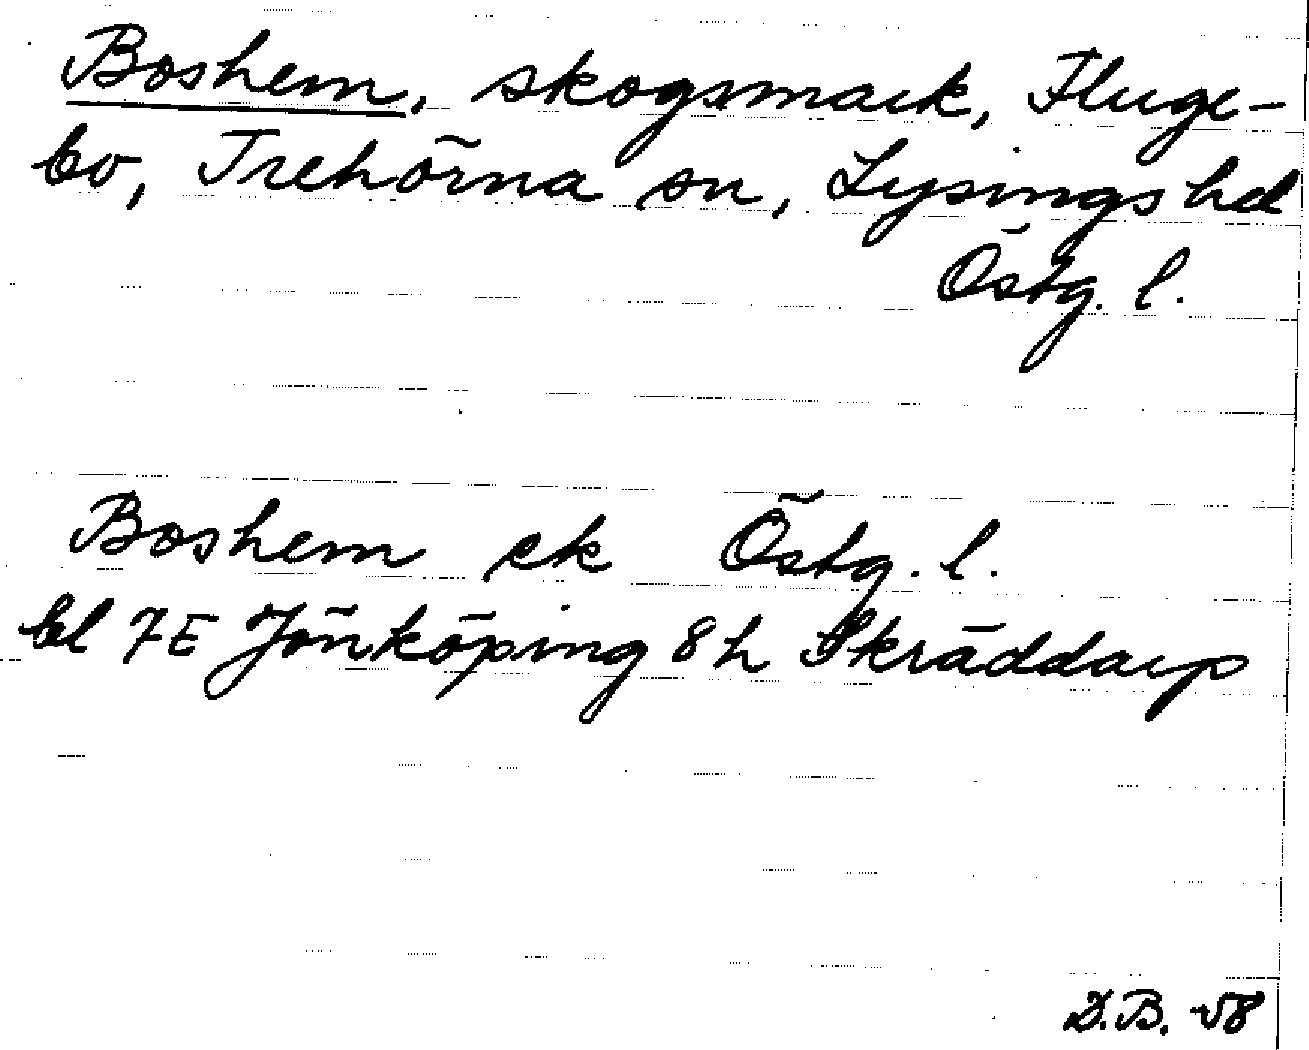 Boshem, skogsmark, Fluge-
bo, Trehörna sn, Lysings hd
Östg. l.
Boshem ek Östg. l.
bl 7E Jönköping 8h Skräddarp
D.B. -58